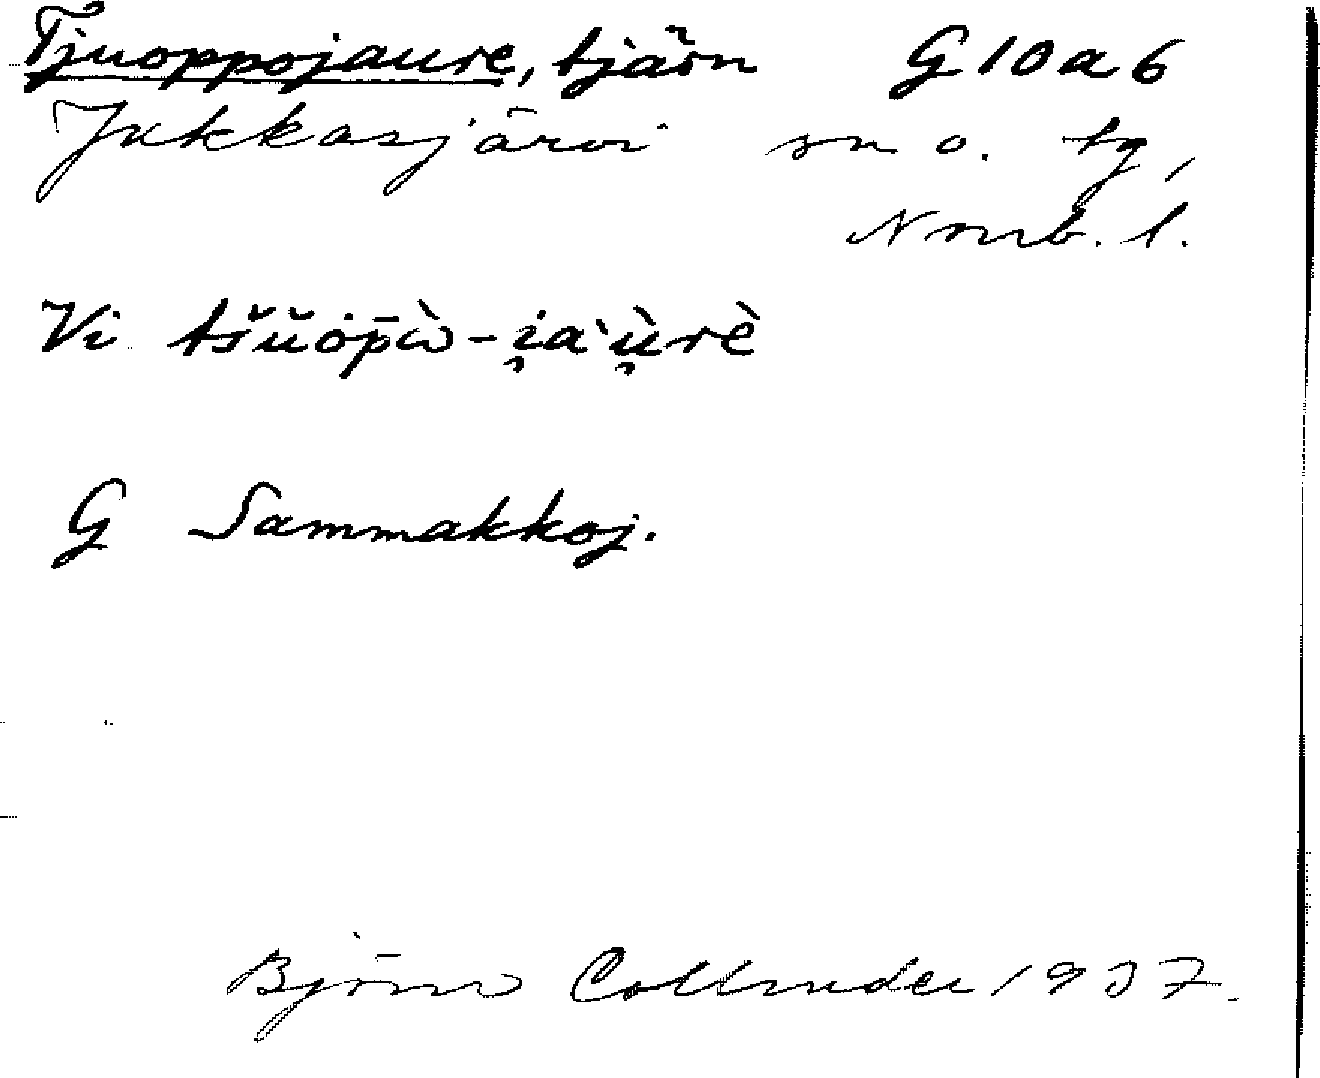 Tjuoppojaure, tjärn G 10 a 6
Jukkasjärvi sn o. tg,
Norrb. l.
Vi tšŭȯp̄ὼ-i̯a`ù̯rè
G Sammakkoj.
Björn Collinder 1937.